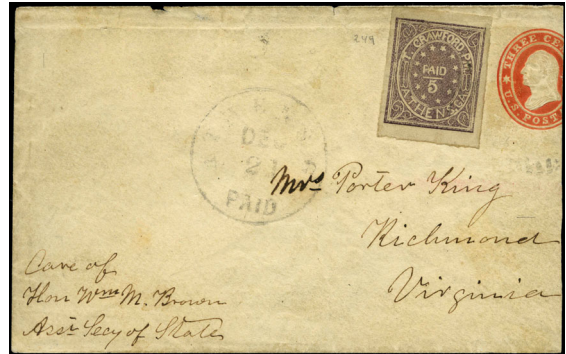 249
T. CRAWFORD P.M.
PAID
5
ATHENS.GA.
THREE CE
U.S. POST
DE
2
PAID
Mrs Porter King
Richmond
Virginia
Care of
Hon Wm M. Brown
Asst Secy of State